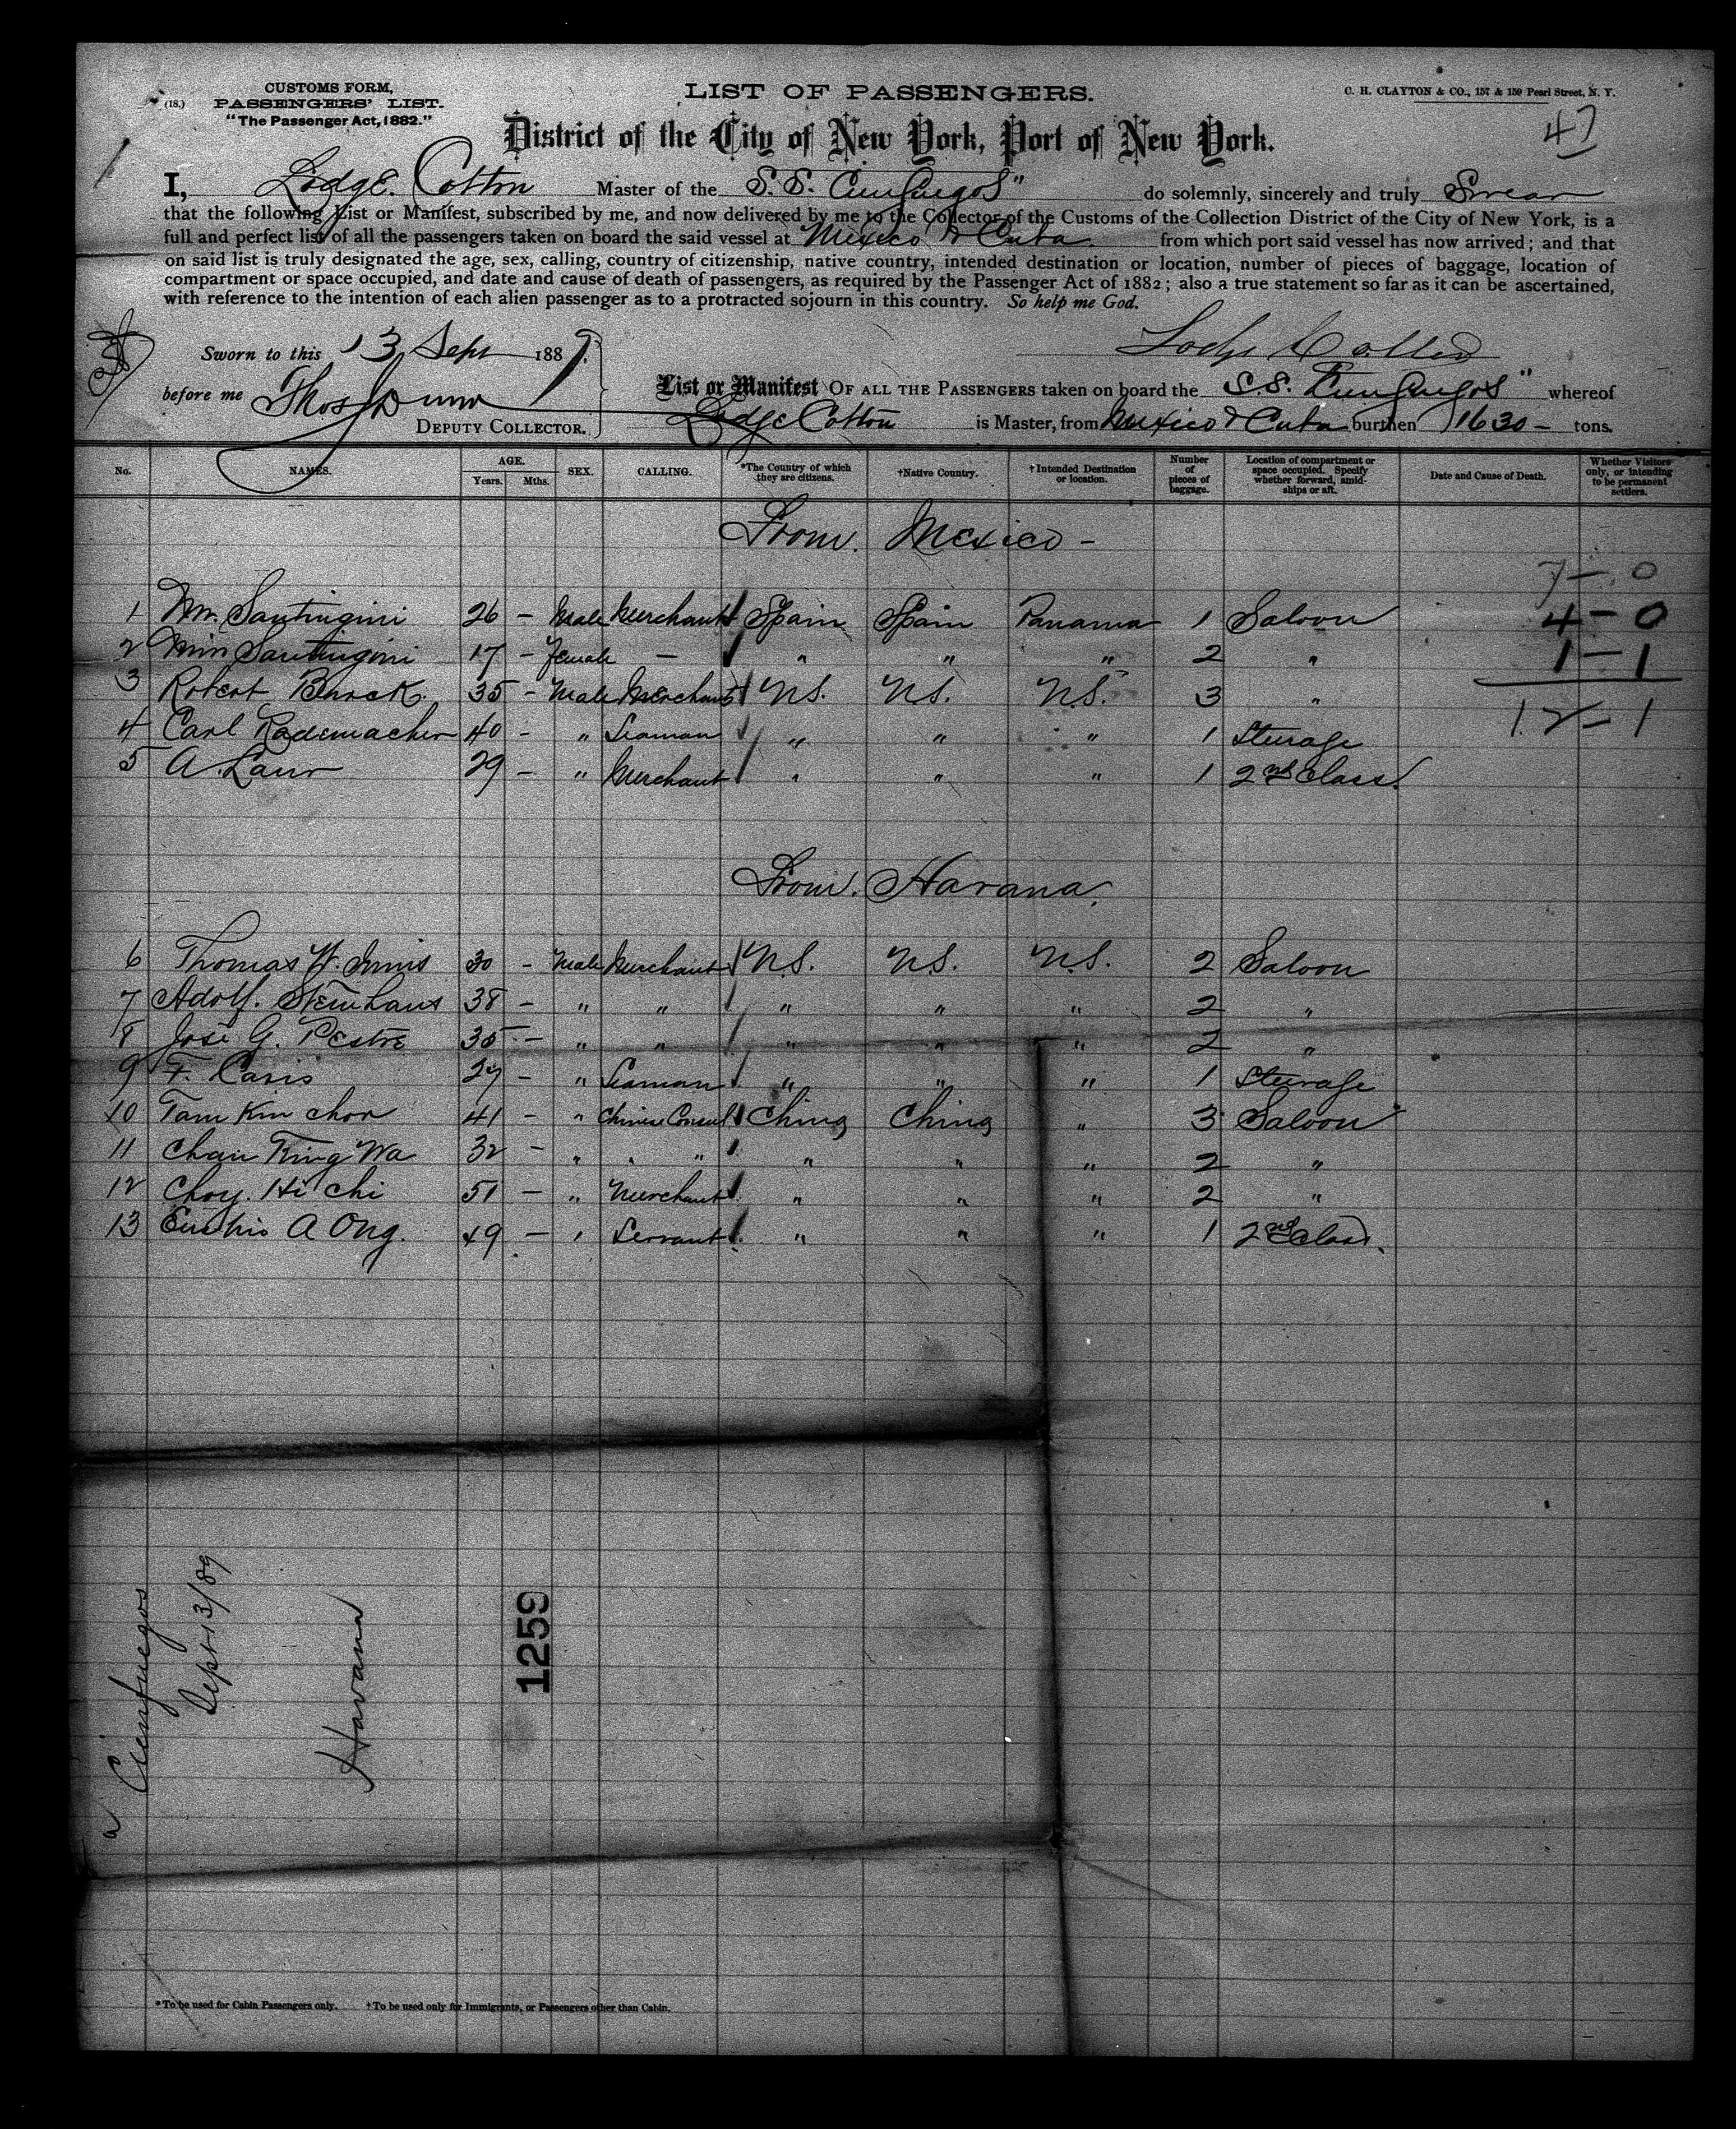 (18.)
CUSTOMS FORM,
PASSENGERS' LIST.
"The Passenger Act, 1882."
LIST OF PASSENGERS.
C. H. CLAYTON & CO., 157 & 159 Pearl Street, N. Y.
47
District of the City of New York, Port of New York.
I, Lodge. Cotton Master of the S.S. Cienfuegos" do solemnly, sincerely and truly Swear
that the following List or Manifest, subscribed by me, and now delivered by me to the Collector of the Customs of the Collection District of the City of New York, is a
full and perfect list of all the passengers taken on board the said vessel at Mexico & Cuba from which port said vessel has now arrived; and that
on said list is truly designated the age, sex, calling, country of citizenship, native country, intended destination or location, number of pieces of baggage, location of
compartment or space occupied, and date and cause of death of passengers, as required by the Passenger Act of 1882; also a true statement so far as it can be ascertained,
with reference to the intention of each alien passenger as to a protracted sojourn in this country. So help me God.
Sworn to this 13 Sept 1889.
Lodge Cotton
before me Thos Dunn
DEPUTY COLLECTOR.
List or Manifest OF ALL THE PASSENGERS taken on board the S.S. Cienfuegos" whereof
Lodge Cotton is Master, from Mexico & Cuba burthen 1630 - tons.
No. NAMES. AGE. Years. Mths. SEX. CALLING. *The Country of which they are citizens. †Native Country. †Intended Destination or location. Number of pieces of baggage. Location of compartment or space occupied. Specify whether forward, amidships or aft. Date and Cause of Death. Whether Visitors only, or intending to be permanent settlers.
From. Mexico -
7 - 0
1 Mr. Santingini 26 - Male Merchant Spain Spain Panama 1 Saloon 4 - 0
2 Miss Santingini 17 - Female - " " " 2 " 1 - 1
3 Robert 35 - Male Merchant U.S. U.S. U.S. 3 "
12 - 1
4 Carl Rademacher 40 - " Seaman " " " 1 Steerage
5 A. 29 - " Merchant " " " 1 2nd Class.
From. Havana.
6 Thomas W. Innis 30 - Male Merchant U.S. U.S. U.S. 2 Saloon
7 Adolf. Steinhaus 38 - " " " " " 2 "
8 José G. 35 - " " " " " 2 "
9 F. 27 - " Seaman " " " 1 Steerage
10 Tam Kin Chor 41 - " Chinese Consul China China " 3 Saloon
11 Chan King Wa 32 - " " " " " " 2 "
12 Choy. Hi Chi 51 - " Merchant " " " 2 "
13 A Ong. 49 - " Servant " " " 1 2nd Class.
a Cienfuegos
Sept 13/89
Havana
1259
*To be used for Cabin Passengers only. †To be used only for Immigrants, or Passengers other than Cabin.